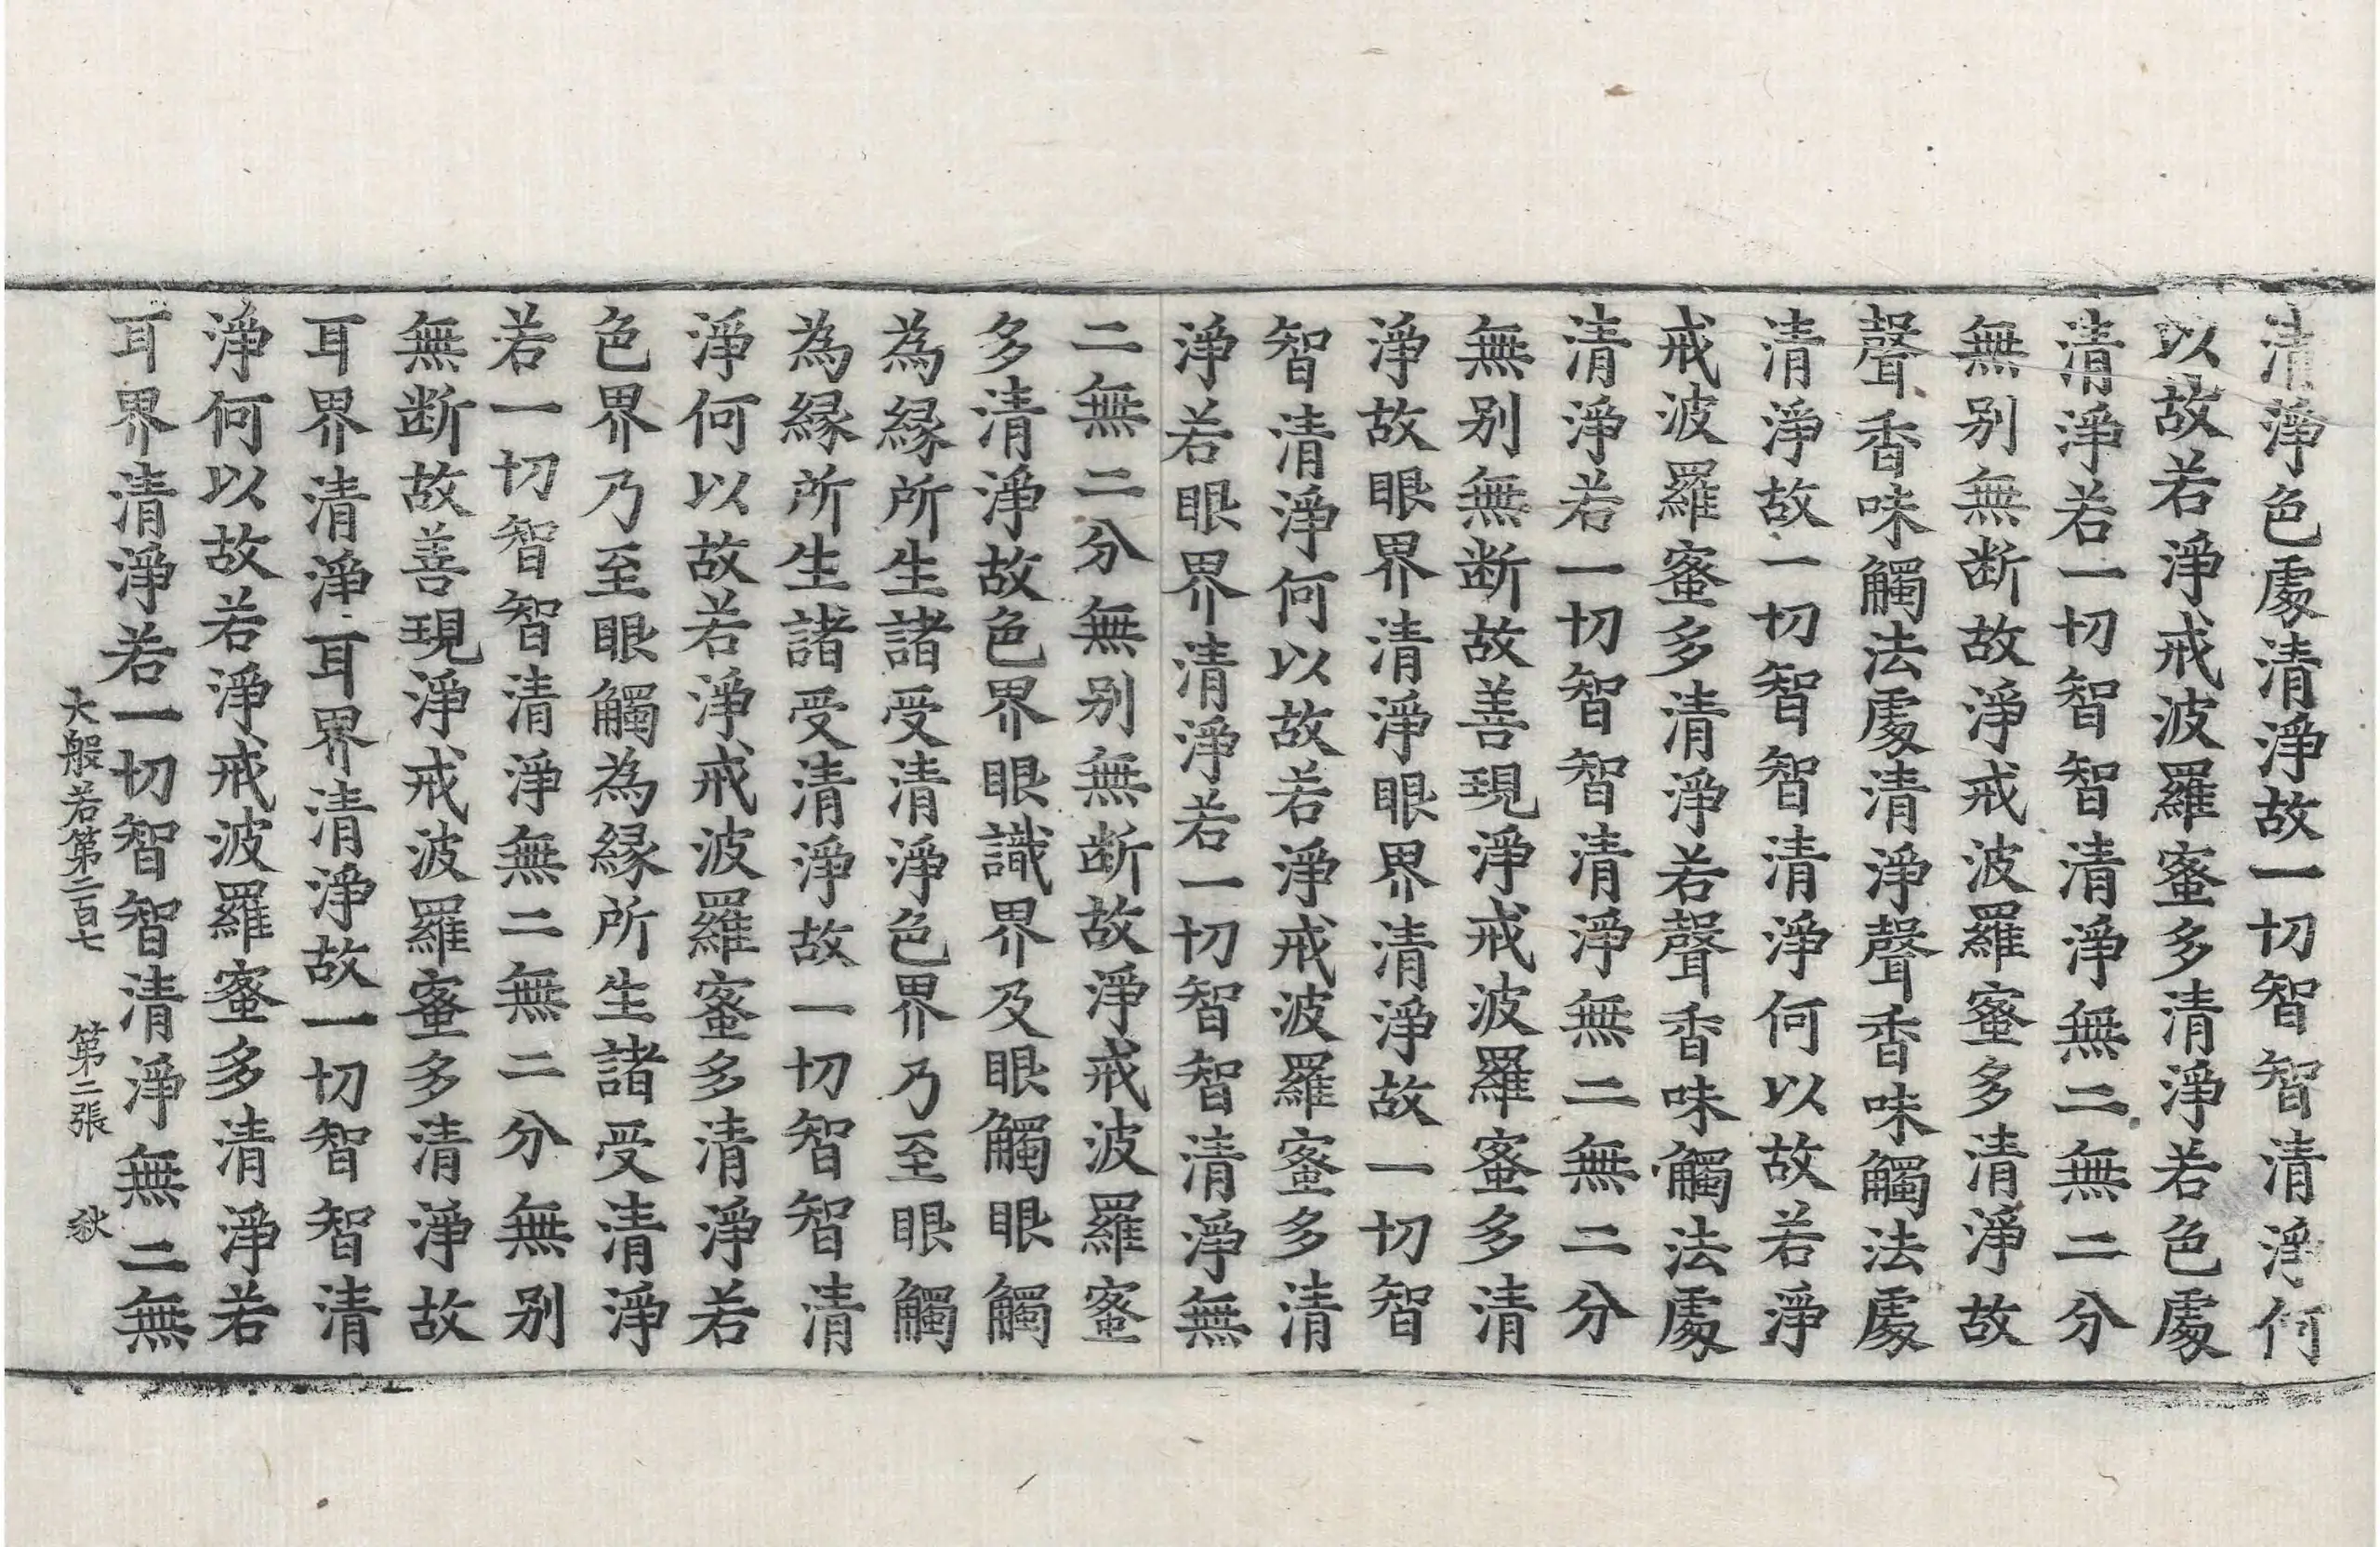 清淨色處清淨故一切智智清淨何
以故若淨戒波羅蜜多清淨若色處
清淨若一切智智清淨無二無二分
無别無断故淨戒波羅蜜多清淨故
聲香味觸法處清淨聲香味觸法處
清淨故一切智智清淨何以故若淨
戒波羅蜜多清淨若聲香味觸法處
清淨若一切智智清淨無二無二分
無别無断故善現淨戒波羅蜜多清
淨故眼界清淨眼界清淨故一切智
智清淨何以故若淨戒波羅蜜多清
淨若眼界清淨若一切智智清淨無
二無二分無别無断故淨戒波羅蜜
多清淨故色界眼識界及眼觸眼觸
為緣所生諸受清淨色界乃至眼觸
為緣所生諸受清淨故一切智智清
淨何以故若淨戒波羅蜜多清淨若
色界乃至眼觸為緣所生諸受清淨
若一切智智清淨無二無二分無别
無断故善現淨戒波羅蜜多清淨故
耳界清淨耳界清淨故一切智智清
淨何以故若淨戒波羅蜜多清淨若
耳界清淨若一切智智清淨無二無
大般若第二百七 第二張 狄